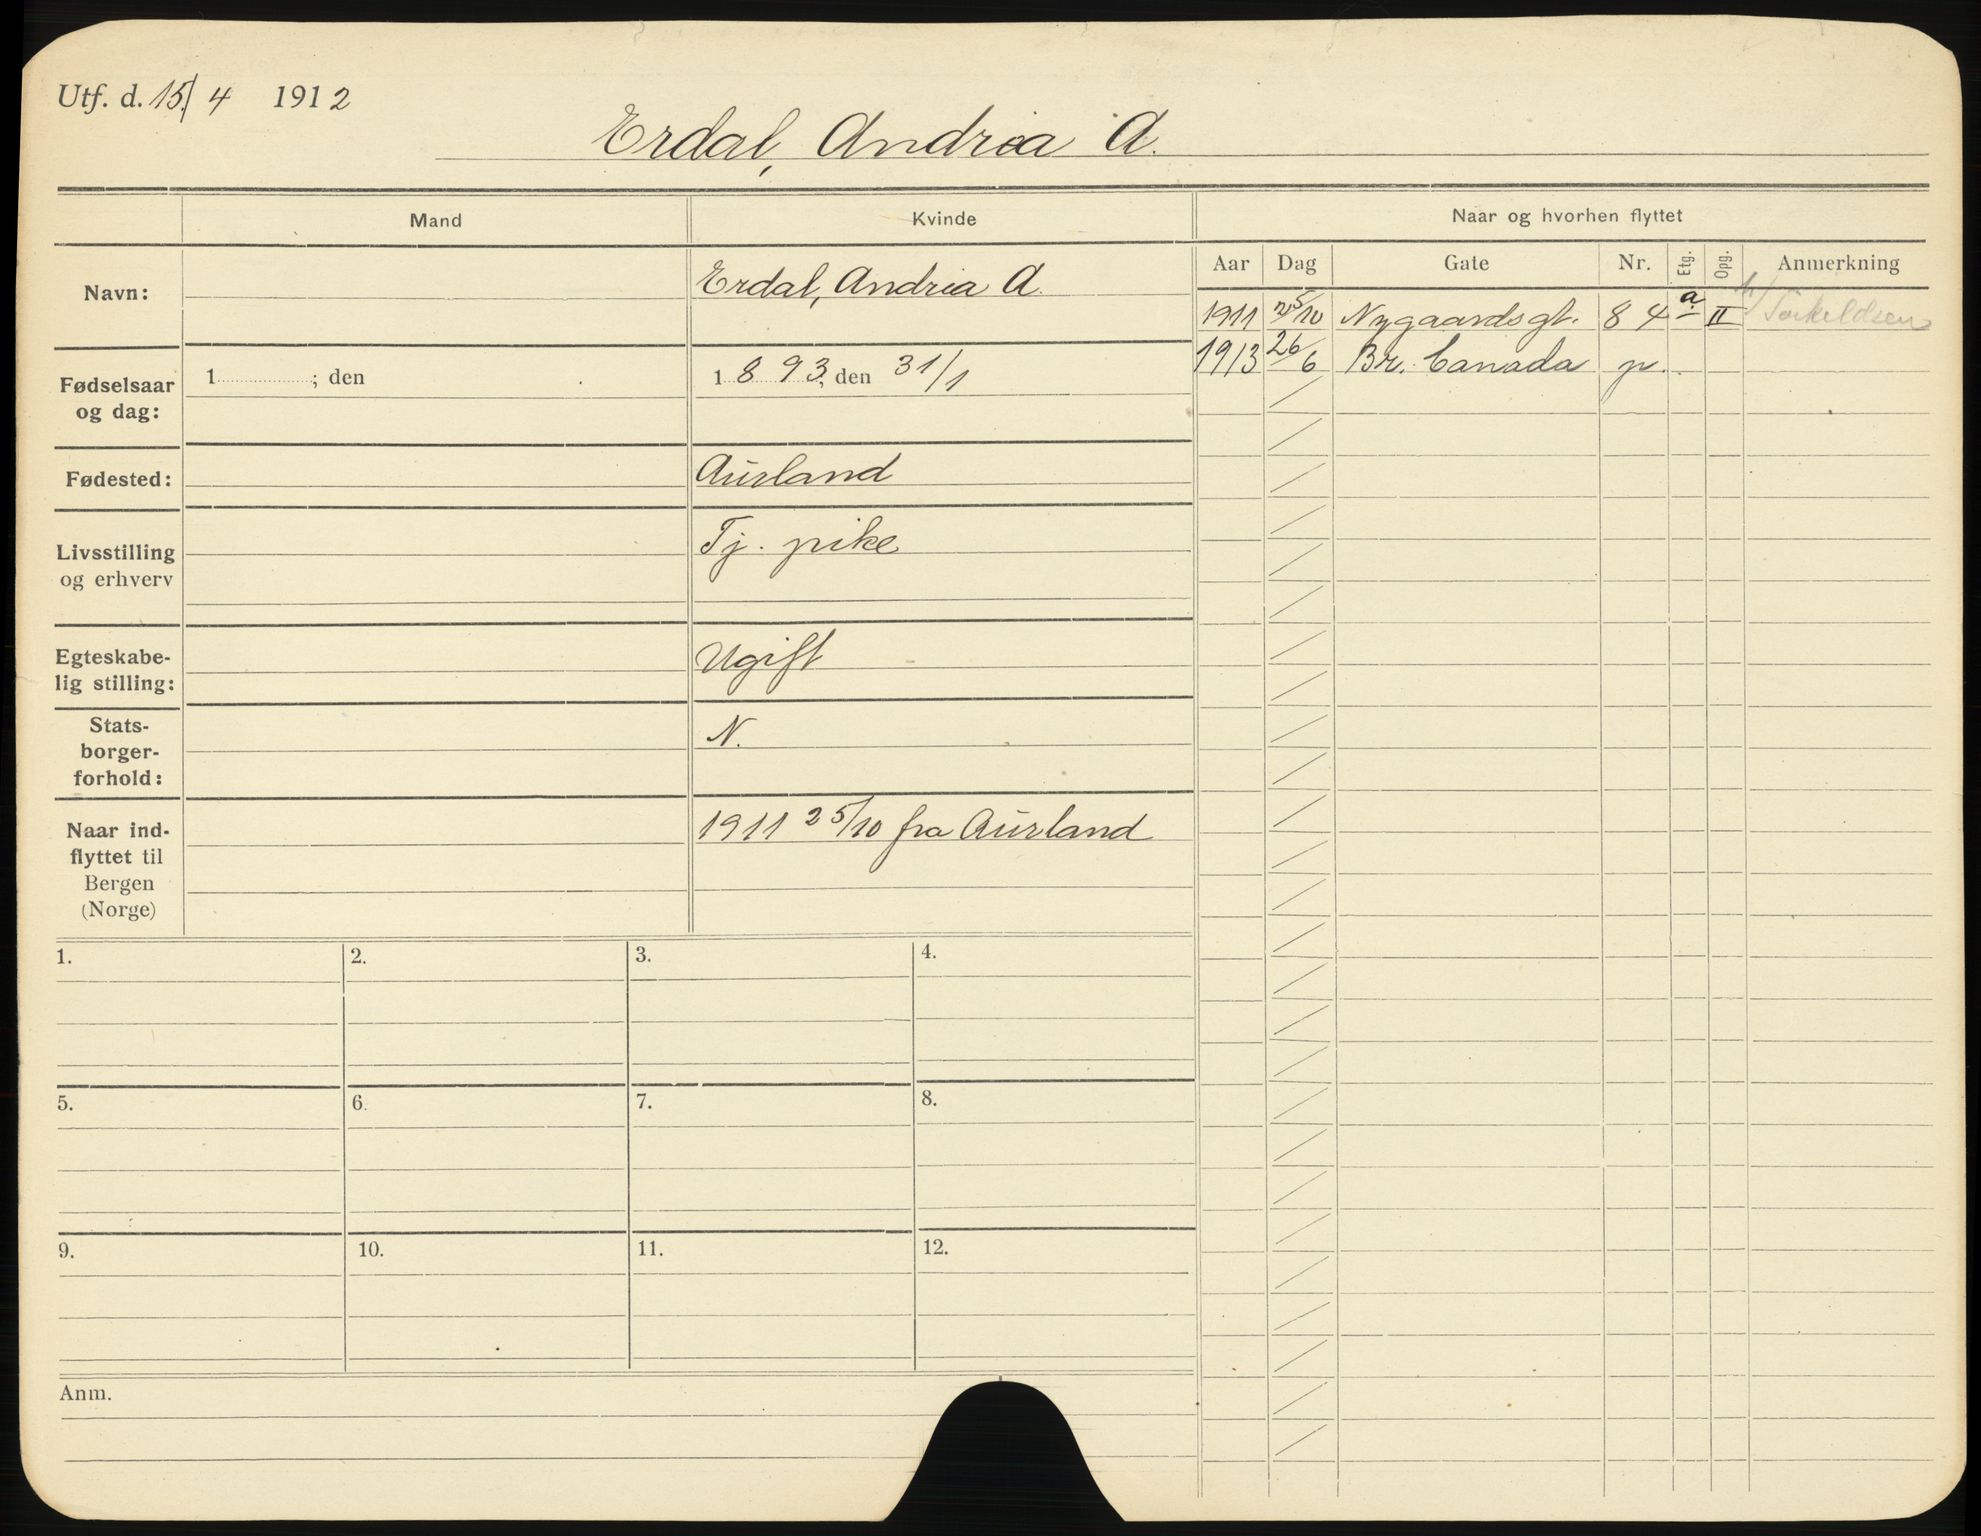 Utf. d. 15/4 1912
Erdal, Andrea A.
Mand
Kvinde
Naar og hvorhen flyttet
Aar Dag Gate Nr. Etg. Opg. Anmerkning
Navn:
Erdal, Andrea A.
1911 25/10 Nygaardsgt. 84 a II h/ Torkeldsen
1913 26/6 Br. Canada p.
Fødselsaar
og dag:
1 ; den
1893; den 31/1
Fødested:
Aurland
Livsstilling
og erhverv
Tj. pike
Egteskabe-
lig stilling:
Ugift
Stats-
borger-
forhold:
N.
Naar ind-
flyttet til
Bergen
(Norge)
1911 25/10 fra Aurland
1. 2. 3. 4.
5. 6. 7. 8.
9. 10. 11. 12.
Anm.